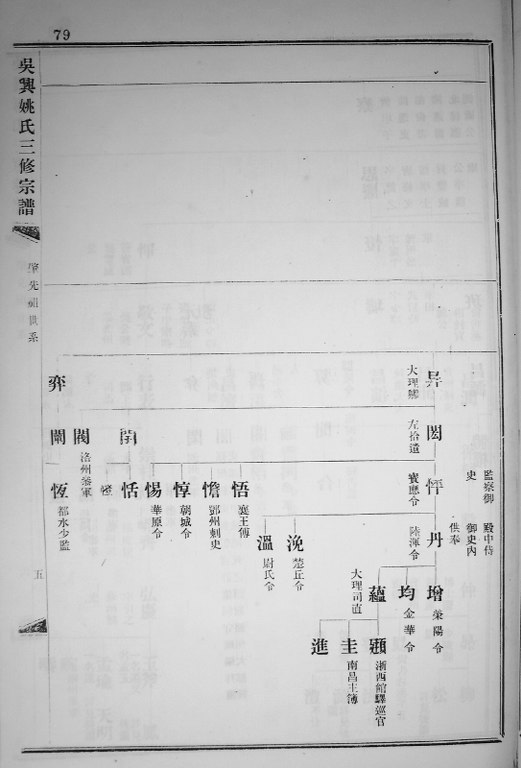 79
吳興姚氏三修宗譜
肇先祖世系
五
監察御史
殿中侍御史內供奉
昇
大理卿
弈
閎
左拾遺
閑
閥
洛州叅軍
闡
悟
襄王傅
憺
鄧州刺史
惇
朝城令
惕
華原令
恬
恆
都水少監
寶應令
丹
陸渾令
浼
楚丘令
溫
尉氏令
增
滎陽令
均
金華令
蘊
大理司直
顗
浙西館驛巡官
圭
南昌主簿
進